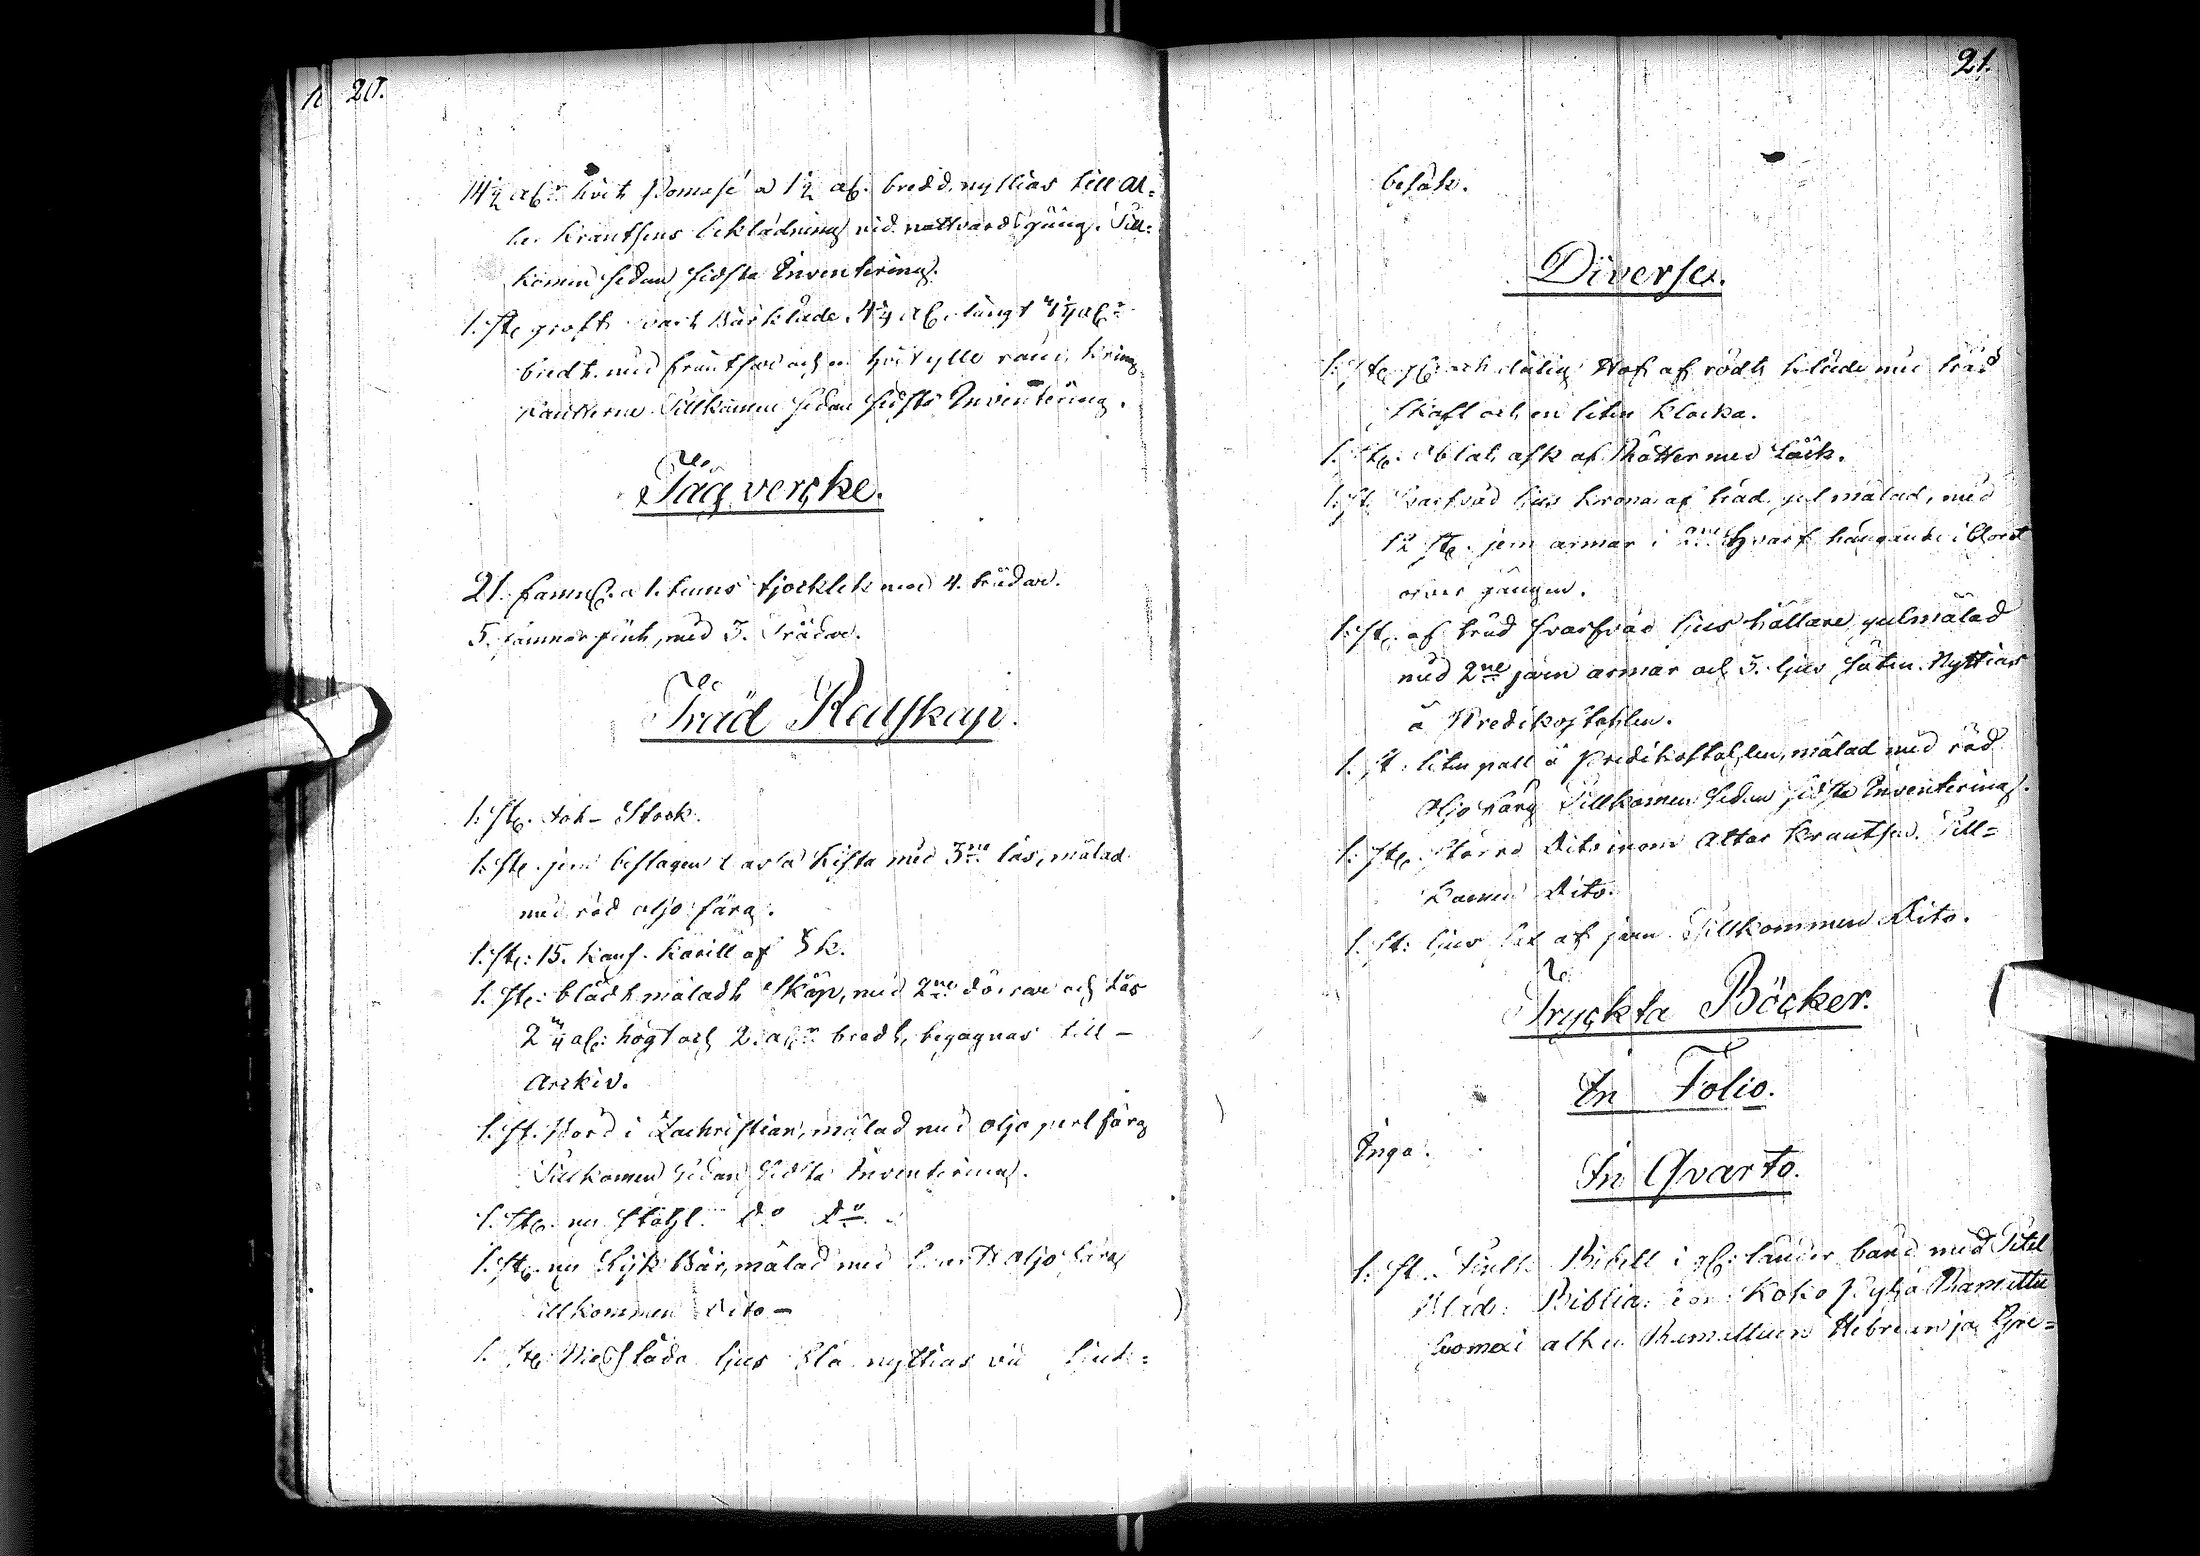 20.
14½ al:r hvit Pomesi a 1½ al. bredd, nyttias till Al-
tar krantsens beklädning vid nattvards gång. Till-
komen sedan sidsta Inventering.
1. st. groft svart Bårkläde 4¼ al. långt
bredt med frantsar och en hvit ylle rand kring
kanterna Tillkomen sedan sidsta Inventering.
Tåg vercke.
21. famn. a 1. tums tjocklek med 4. trådar.
5. famnar fint, med 3. Trådar.
Träd Redskap.
1. st. Stock.
1. st. jern beslagen kista med 3ne lås, målad
med röd oljo färg.
1. st. 15. kans. karill af
1. st. blådt måladt Skåp, med 2ne dörrar och lås
2 al. högt och 2. al:r bredt, begagnas till -
Arckiv.
1. st. Bord i Zachristian, målad med oljo perl färg
Tillkomen sedan sidsta Inventering.
1. st. ny Stohl Do Do
1. st. ny Lijk Bår, målad med svart oljo färg
Tillkommen Dito -
1. st. ljus nyttias vid Sjuk-
21.
besök.
Diverse.
1. st. dålig Hof af rödt kläde med träd
skaft och en liten klocka.
1. st. Oblat ask af Rötter med Låck.
1. st. Svarfvad ljus krona af träd gul målad, med
12 st. jern armar i 2ne hvarf hängande i Choret
öfver gången.
1. st. af träd svarfvad ljus hållare gulmålad
med 2ne jern armar och 3. ljus säten. Nyttias
å Predikostohlen.
1. st. liten pall å Predikostohlen, målad med röd
Oljo färg Tillkomen sedan sidsta Inventering.
1. st. större Dito inom Altar krantsen. Till-
komen Dito.
1. st: ljus sax af jern Tillkommen Dito.
Tryckta Böcker.
In Folio.
Inga.
In Qvarto.
1. st. Finsk Bibell i band med Titel
Blad: Biblia: se on: Koko Pyhä Ramattu
Suomexi alku Ramattuin Hebrean ja Gre-